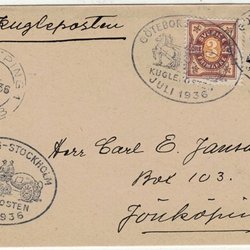 Kugleposten
GÖTEBOR
KUGLEPOSTEN
JULI 1936
SVERIGE
3
PING 1
36
G-STOCKHOLM
POSTEN
1936
Herr Carl E. Jans
Box 103.
Jönköpin